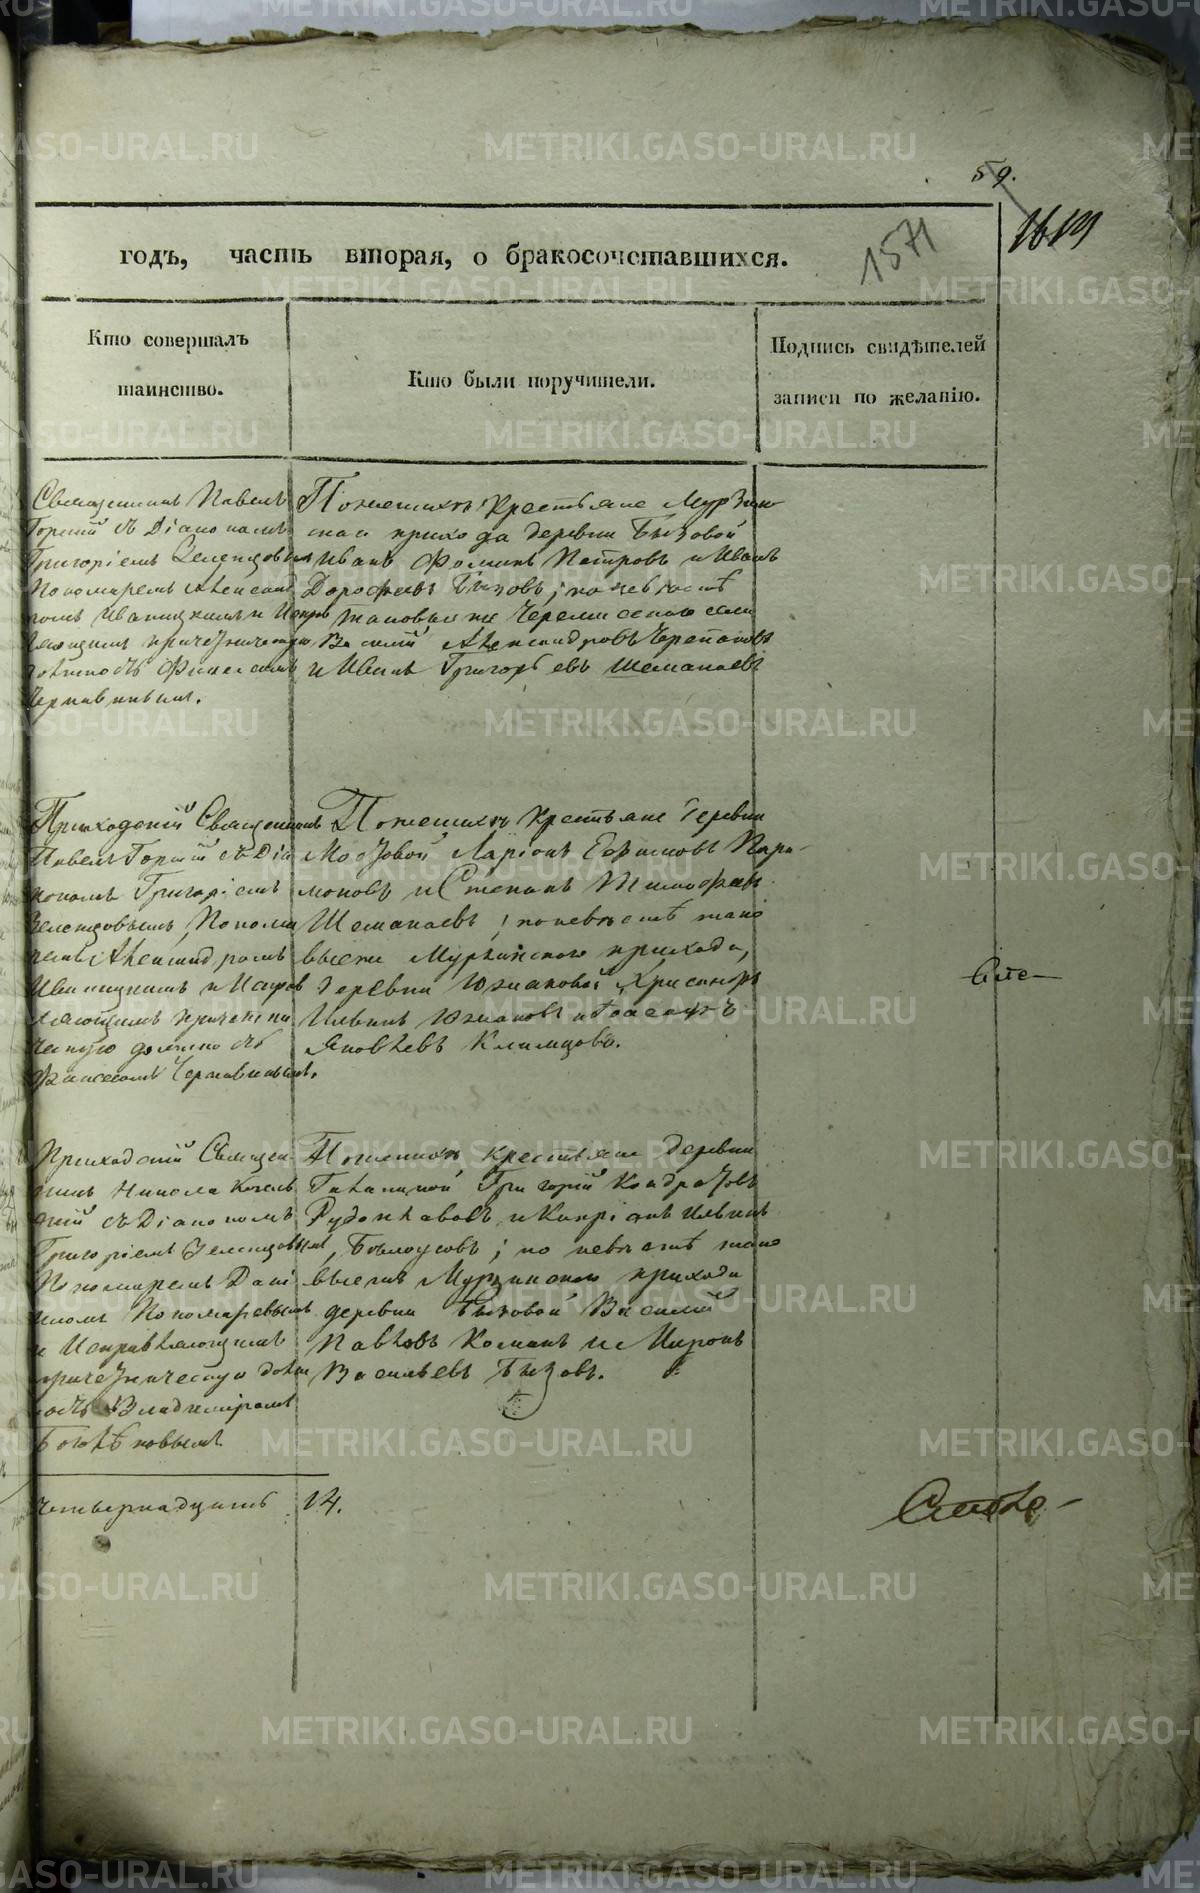 59.
1571
1619
годъ, часть вторая, о бракосочетавшихся.
Кто совершалъ
таинство.
Кто были поручители.
Подпись свидѣтелей
записи по желанію.
Священникъ Павелъ
Горный съ Діакономъ
Григоріемъ Зеленцовымъ
Пономаремъ Александ
ромъ Иваницкимъ и Исправ
ляющимъ причетническую
должность
По женихѣ Крестьяне Мурзин
скаго прихода деревни Бызовой
Иванъ Фоминъ Петровъ и Иванъ
Дорофѣевъ Бызовъ; по невѣстѣ
таковые же Черемисскаго села
Василій Александровъ Черепановъ
и Иванъ Григорьевъ Шеманаевъ
Приходскій Священникъ
Павелъ Горный съ Діа
кономъ Григоріемъ
Зеленцовымъ, Понома
ремъ Александромъ
Иваницкимъ и Исправ
ляющимъ причетни
ческую должность
По женихѣ Крестьяне деревни
Ларіонъ Ефимовъ Пара-
моновъ и Степанъ Тимофѣевъ
Шеманаевъ; по невѣстѣ тако
выеже Мурзинскаго прихода,
деревни Южаковой Хрисанфъ
Ильинъ Южаковъ и
Яковлевъ Климцовъ.
Приходскій Священ
никъ Никола
съ Діакономъ
Григоріемъ Зеленцовымъ,
Пономаремъ Дані
иломъ Пономаревымъ
и Исправляющимъ
причетническую долж
ность Владиміромъ
Боголѣповымъ.
По женихѣ крестьяне деревни
Григорій Кондратовъ
и Кипріанъ Ильинъ
Бѣлоусовъ; по невѣстѣ тако
выеже Мурзинскаго прихода
деревни Бызовой Василій
Павловъ Команъ и Миронъ
Васильевъ Бызовъ.
Четырнадцать 14.
METRIKI.GASO-URAL.RU